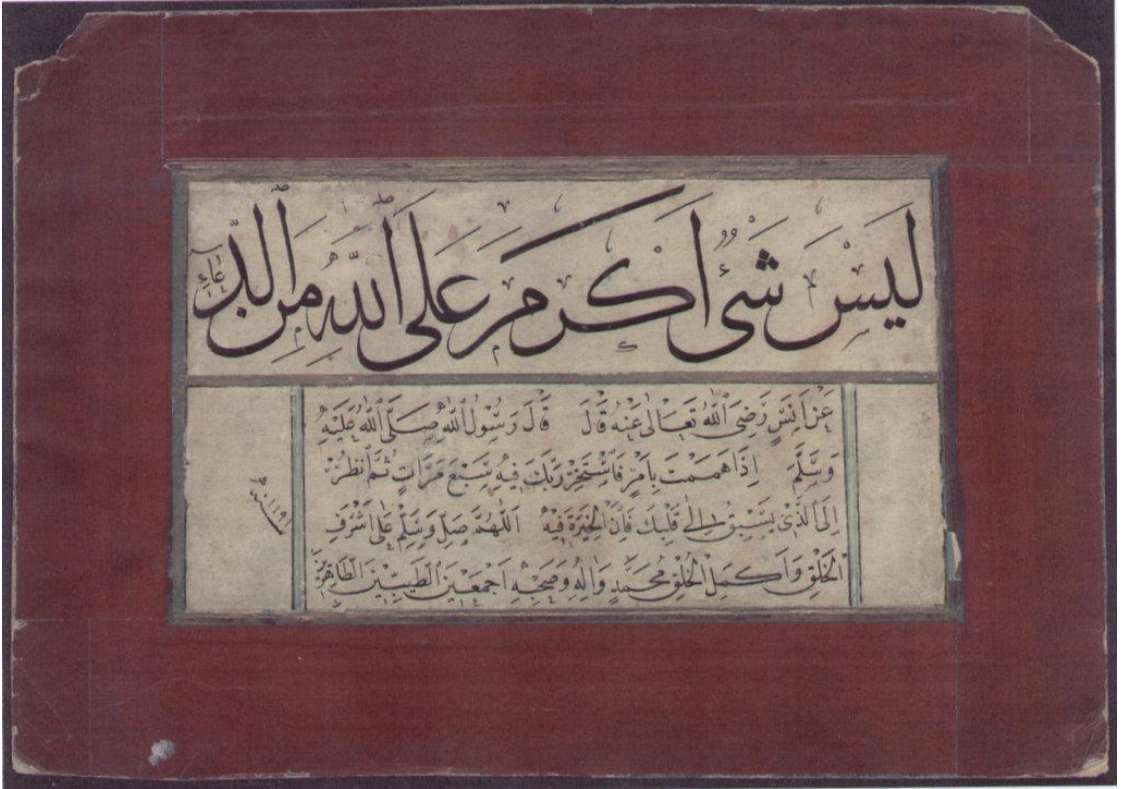 لَيْسَ شَيْءٌ اَكْرَمَ عَلَى اللّٰهِ مِنَ الدُّعَاءِ
عَنْ اَنَسٍ رَضِيَ اللّٰهُ تَعَالٰى عَنْهُ قَالَ قَالَ رَسُولُ اللّٰهِ صَلَّى اللّٰهُ عَلَيْهِ
وَسَلَّمَ اِذَا هَمَمْتَ بِاَمْرٍ فَاسْتَخِرْ رَبَّكَ فِيهِ سَبْعَ مَرَّاتٍ ثُمَّ انْظُرْ
اِلَى الَّذِي يَسْبِقُ اِلٰى قَلْبِكَ فَاِنَّ الْخِيَرَةَ فِيهِ اَللّٰهُمَّ صَلِّ وَسَلِّمْ عَلٰى اَشْرَفِ
الْخَلْقِ وَاَكْمَلِ الْخَلْقِ مُحَمَّدٍ وَاٰلِهِ وَصَحْبِهِ اَجْمَعِينَ الطَّيِّبِينَ الطَّاهِرِينَ
سنة ١١٩٢